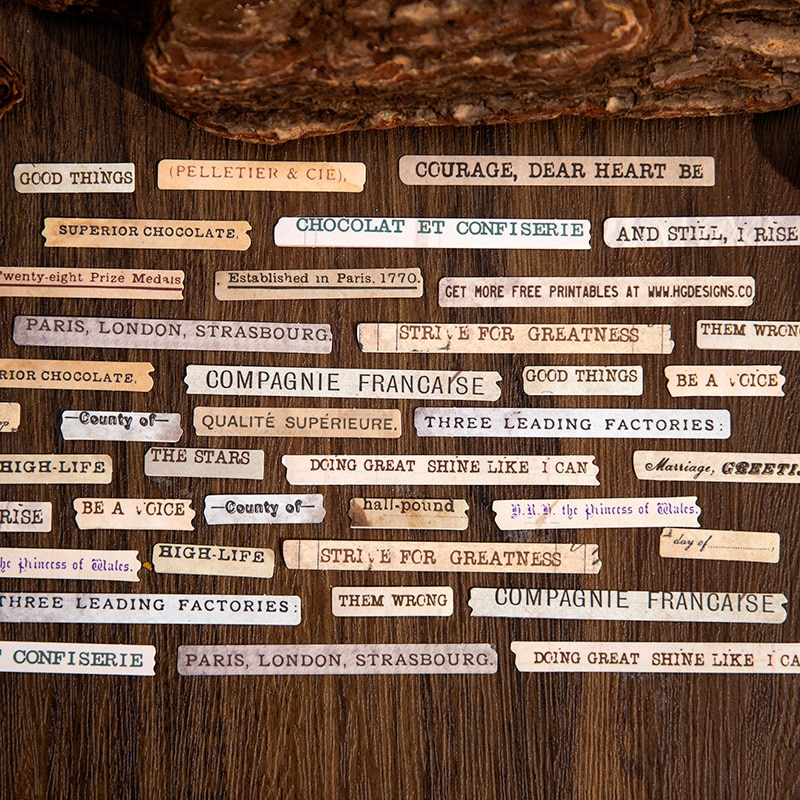 GOOD THINGS
(PELLETIER & CIE),
COURAGE, DEAR HEART BE
SUPERIOR CHOCOLATE,
CHOCOLAT ET CONFISERIE
AND STILL, I RISE
Twenty-eight Prize Medals
Established in Paris, 1770.
GET MORE FREE PRINTABLES AT WWW.HGDESIGNS.CO
PARIS, LONDON, STRASBOURG.
STRIVE FOR GREATNESS
THEM WRONG
RIOR CHOCOLATE,
COMPAGNIE FRANCAISE
GOOD THINGS
BE A VOICE
County of
QUALITÉ SUPÉRIEURE.
THREE LEADING FACTORIES:
HIGH-LIFE
THE STARS
DOING GREAT SHINE LIKE I CAN
Marriage, GREETI
RISE
BE A VOICE
County of
half-pound
H.R.H. the Princess of Wales.
he Princess of Wales.
HIGH-LIFE
STRIVE FOR GREATNESS
day of
THREE LEADING FACTORIES:
THEM WRONG
COMPAGNIE FRANCAISE
CONFISERIE
PARIS, LONDON, STRASBOURG.
DOING GREAT SHINE LIKE I CA